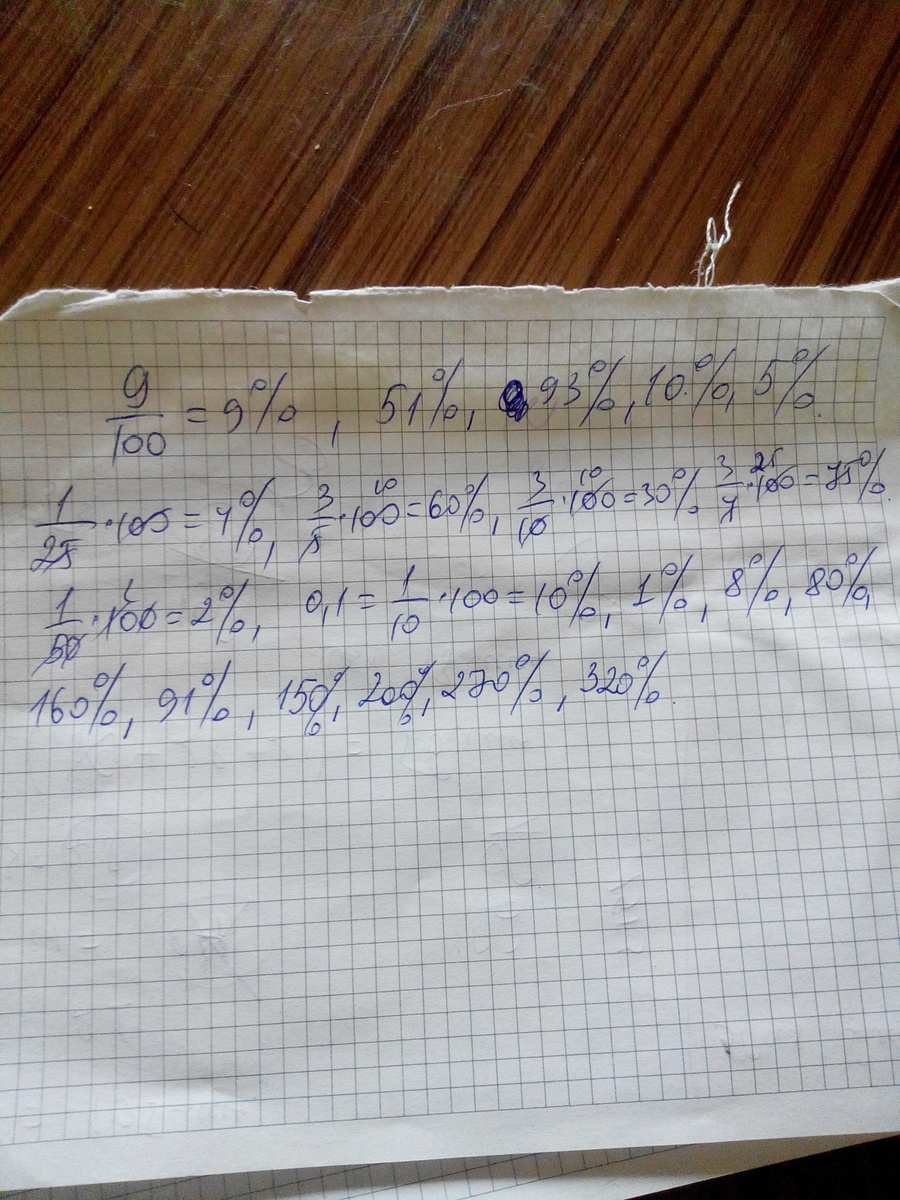 9/100 = 9%, 51%, 93%, 10%, 5%.
1/25 · 100 = 4%, 3/5 · 100 = 60%, 3/10 · 100 = 30%, 3/4 · 100 = 75%.
1/50 · 100 = 2%, 0,1 = 1/10 · 100 = 10%, 1%, 8%, 80%,
160%, 91%, 150%, 200%, 270%, 320%.